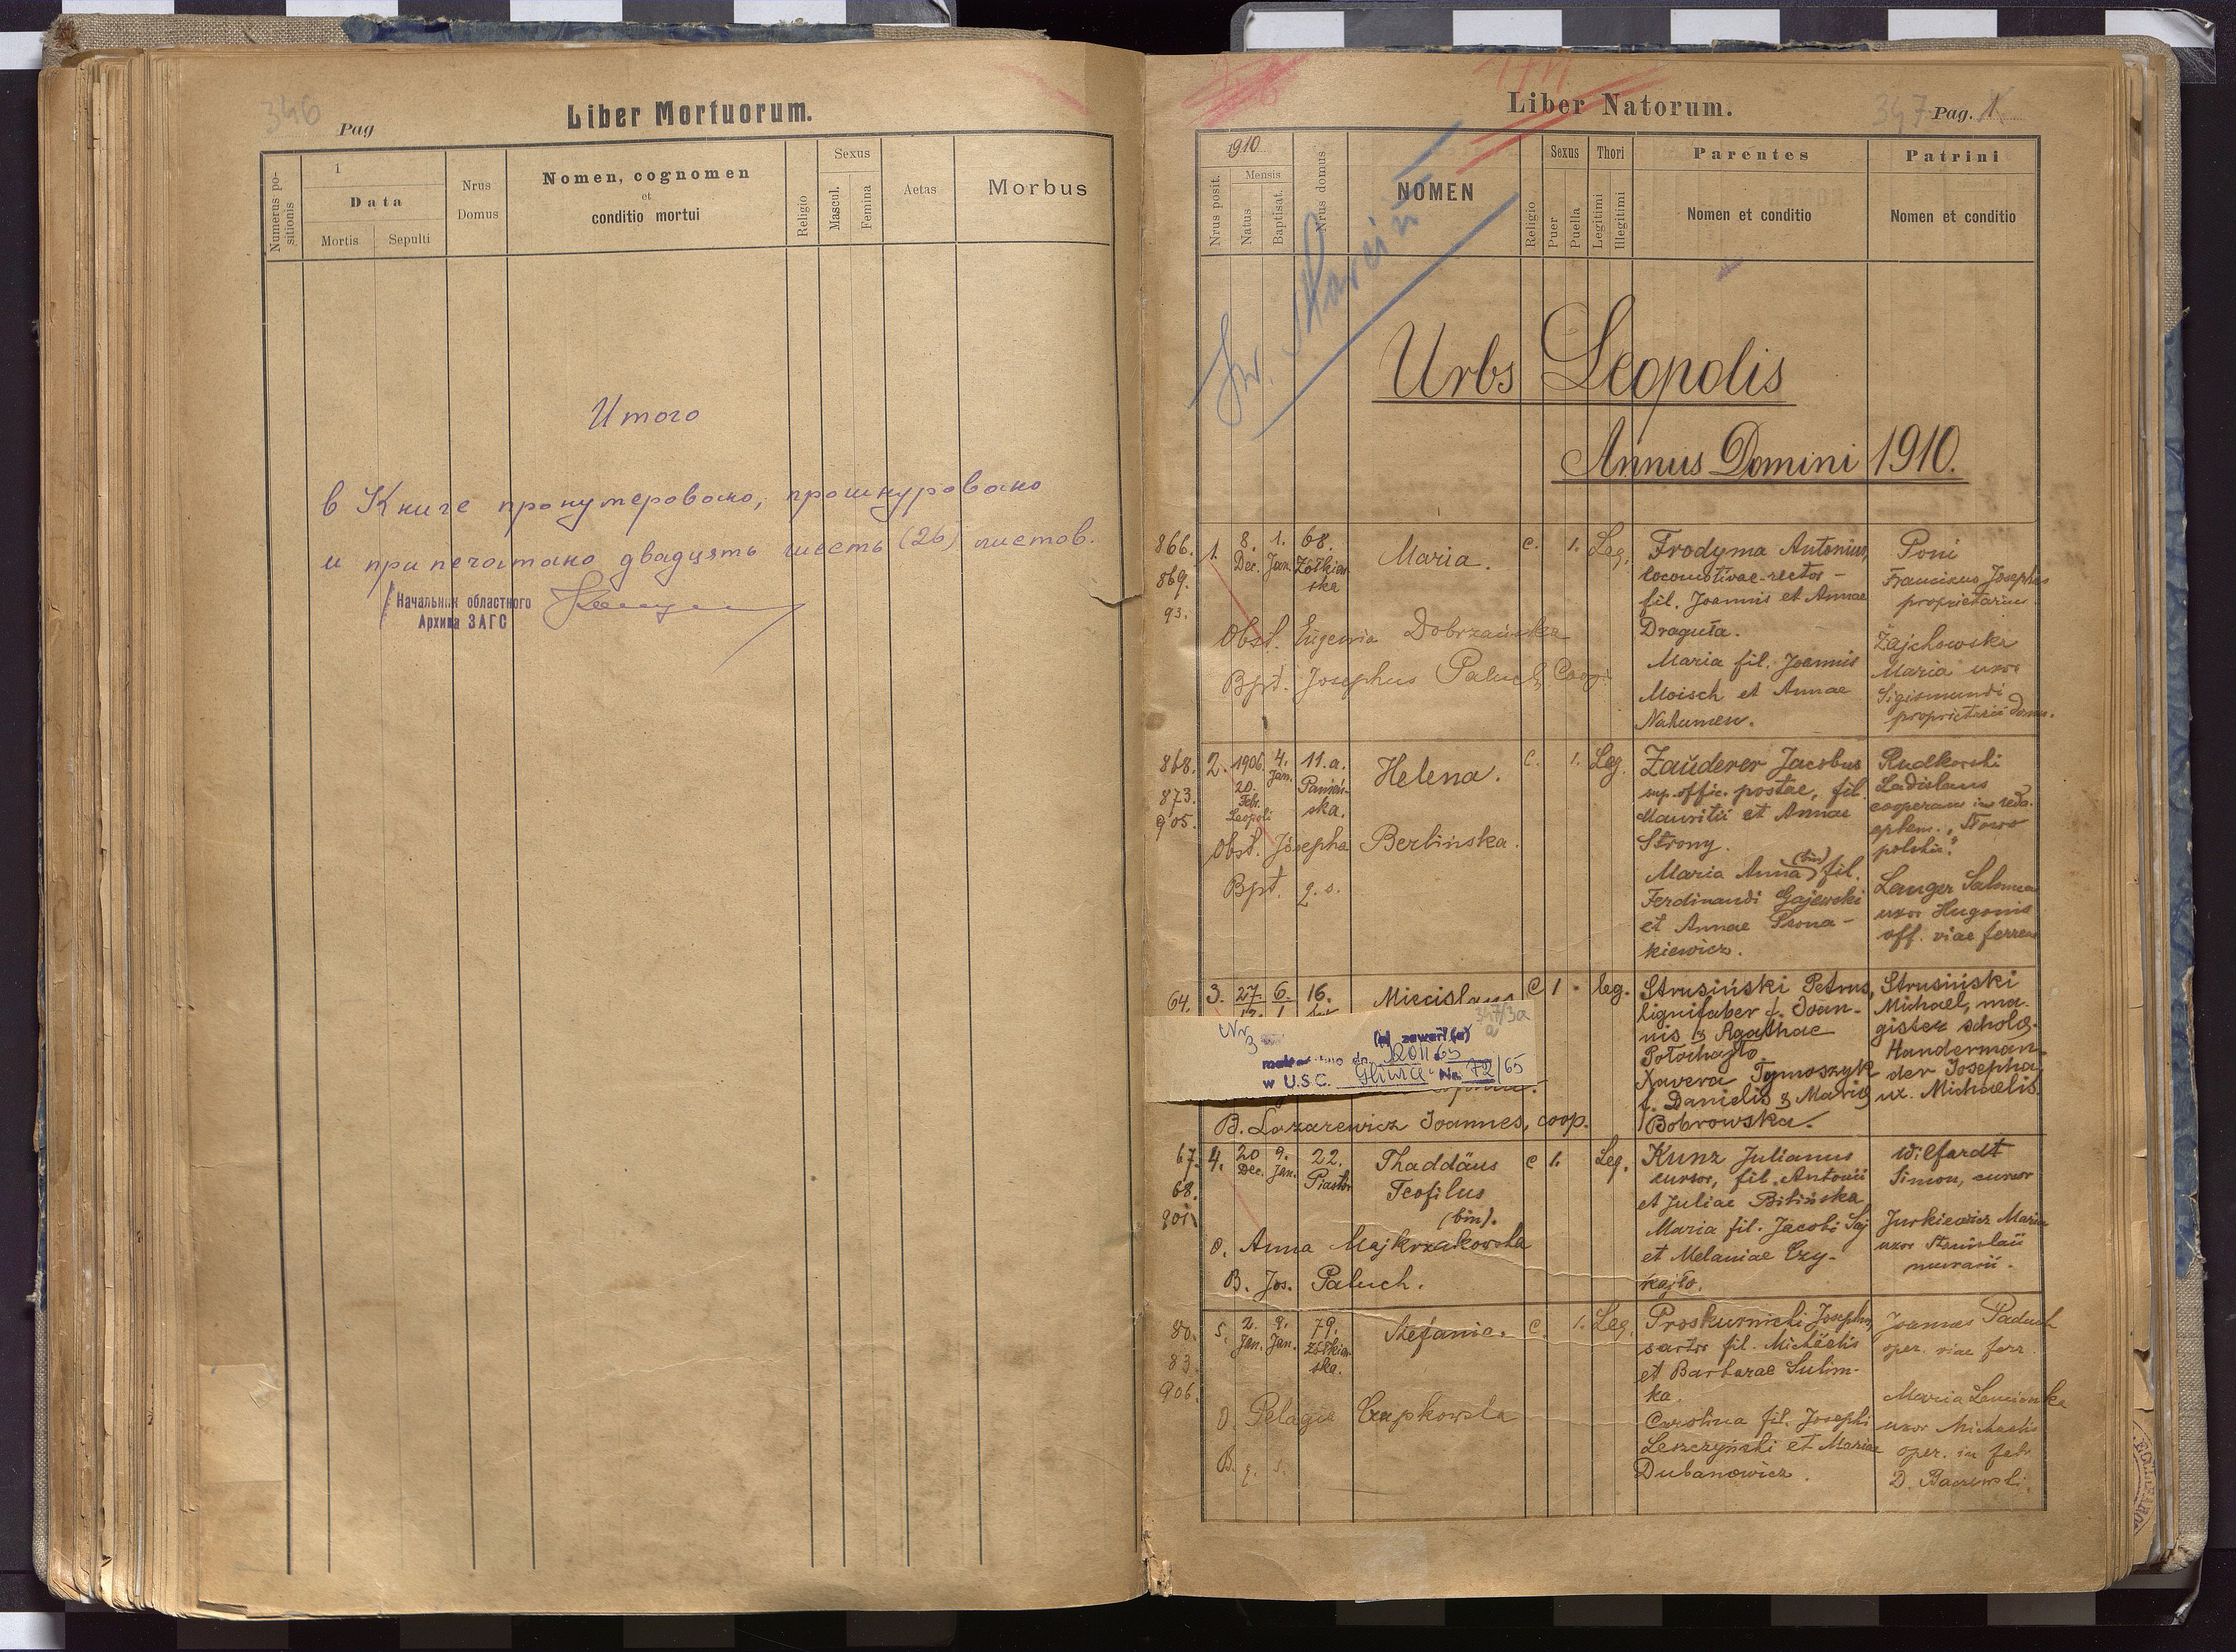 346
Pag
Liber Mortuorum.
Numerus positionis
1
Data
Mortis
Sepulti
Nrus
Domus
Nomen, cognomen
et
conditio mortui
Religio
Sexus
Mascul.
Femina
Aetas
Morbus
Итого
в Книге пронумеровано, прошнуровано
и припечатано двадцять шесть (26) листов.
Начальник областного
Архива ЗАГС
Liber Natorum.
347
Pag. 1
1910
Nrus posit.
Mensis
Natus
Baptisat.
Nrus domus
NOMEN
Religio
Sexus
Puer
Puella
Thori
Legitimi
Illegitimi
Parentes
Nomen et conditio
Patrini
Nomen et conditio
Św. Marcin
Urbs Leopolis
Annus Domini 1910.
866.
869.
93.
1.
8.
Dec.
1.
Jan.
68.
Żółkiew
ska
Maria.
c.
1.
Leg.
Frodyma Antonius,
locomotivae-rector -
fil. Joannis et Annae
Draguła.
Maria fil. Joannis
Moisch et Annae
Nahumen.
Poni
Franciscus Josephus
proprietarius.
Zajchowska
Maria uxor
Sigismundi
proprietarii domu.
Obst. Eugenia Dobrzańska
Bpt. Josephus Paluch, Coop.
868.
873.
905.
2.
1906
20.
Febr.
Leopoli
4.
Jan.
11.a.
Panień-
ska.
Helena.
c.
1.
Leg.
Zauderer Jacobus
sup. offic. postae, fil.
Mauritii et Annae
Strony.
Maria Anna (bin) fil.
Ferdinandi Gajewski
et Annae
kiewicz.
Rudkowski
Ladislaus
cooperans in reda.
ephem. „Słowo
polskie."
Langer Salomea
uxor Hugonis
off. viae ferreae
Obst. Josepha Berlińska.
Bpt. q. s.
64.
3.
27.
6.
16.
Miecislaus
C
1
leg.
Strusiński Petrus,
lignifaber f. Joan-
nis & Agathae
Potochajło.
Xavera Tymoszyk
f. Danielis & Mariae
Bobrowska.
Strusiński
Michael, ma-
gister schola.
Handerman-
der Josepha,
ux. Michaelis.
Nr
3
347/3a
(i) zawarł(a)
w U.S.C. Gliwice Nr. 72/65
B. Lazarewicz Joannes, coop.
67.
68.
901.
4.
20
Dec.
9.
Jan.
22.
Piastów
Thaddäus
Teofilus
(bin).
c
1.
Leg.
Kunz Julianus
cursor, fil. Antonii
et Juliae Bilińska
Maria fil. Jacobi Saj
et Melaniae Czy-
kajło.
Wilfardt
Simon, cursor
Jurkiewicz Maria
uxor Stanislai
murarii.
O. Anna Majkrzakowska
B. Jos. Paluch.
80.
83.
906.
5.
2.
Jan.
9.
Jan.
79.
Żółkiew
ska.
Stefania.
c.
1.
Leg.
Proskurnicki Josephus,
sartor fil. Michaelis
et Barbarae Sulim-
ka.
Carolina fil. Josephi
Leszczyński et Mariae
Dubanowicz.
Joannes Paduch
oper. viae ferr.
Maria
uxor Michaelis
oper. in fabr.
D. Baczewski.
O. Pelagia Czapkowska
B. q. s.